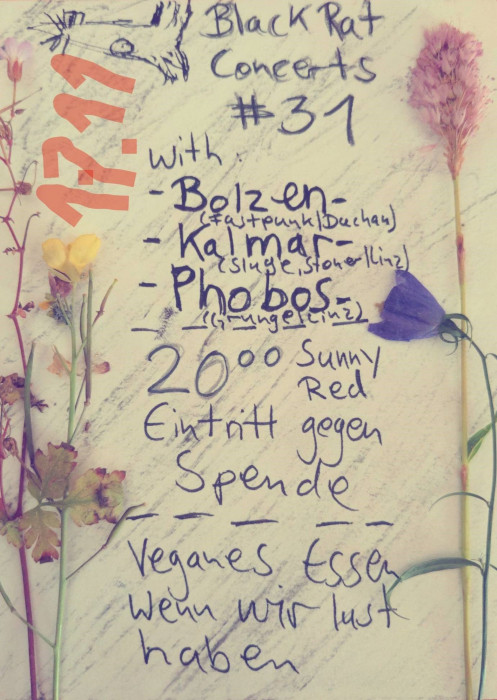 Black Rat
Concerts
#31
17.11
with:
-Bolzen-
(Fastpunk|Dachau)
-Kalmar-
(Sluge, Stoner|Linz)
-Phobos-
(Grunge|Linz)
20⁰⁰ Sunny
Red
Eintritt gegen
Spende
Veganes Essen
wenn wir lust
haben